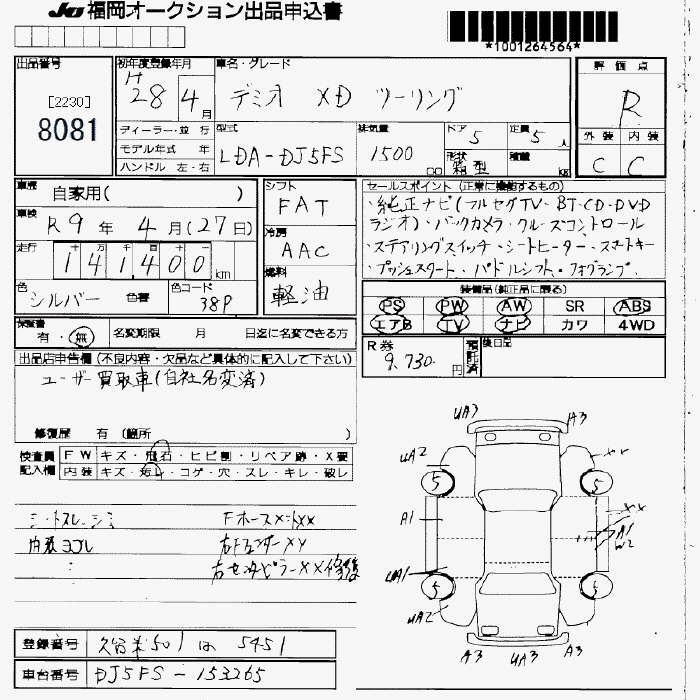 JU 福岡オークション出品申込書
*1001264564*
出品番号
[2230]
8081
初年度登録年月
H
28 4月
車名・グレード
デミオ XD ツーリング
評価点
R
外装 内装
C C
ディーラー・並行
モデル年式 年
ハンドル 左・右
型式
LDA-DJ5FS
排気量
1500 cc
ドア 5
定員 5 人
形状 箱型
積載 kg
車歴
自家用( )
車検
R9年 4月(27日)
走行
十 万 千 百 十 一
141400 km
色 シルバー 色替
色コード 38P
シフト
FAT
冷房
AAC
燃料
軽油
セールスポイント (正常に機能するもの)
・純正ナビ(フルセグTV・BT・CD・DVD
ラジオ)・バックカメラ・クルーズコントロール
・ステアリングスイッチ・シートヒーター・スマートキー
・プッシュスタート・パドルシフト・フォグランプ
装備品(純正品に限る)
PS PW AW SR ABS
エアB TV ナビ カワ 4WD
保証書
有・無
名変期限 月 日迄に名変できる方
R券
9,730円
預託済
後日品
出品店申告欄 (不良内容・欠品など具体的に記入して下さい)
ユーザー買取車(自社名変済)
修復歴 有 (箇所 )
検査員
記入欄
FW キズ・飛石・ヒビ割・リペア跡・X要
内装 キズ・汚れ・コゲ・穴・スレ・キレ・破レ
シートスレ・シミ
内装ヨゴレ
FホースメントXX
右FフェンダーXY
右センターピラーXX修復
UA3 A3
UA2 XX
5 5
A1 XX
A1
W2
UA1
5 5
UA2
A3 UA3 A3
登録番号 久留米501 は 5451
車台番号 DJ5FS-153265